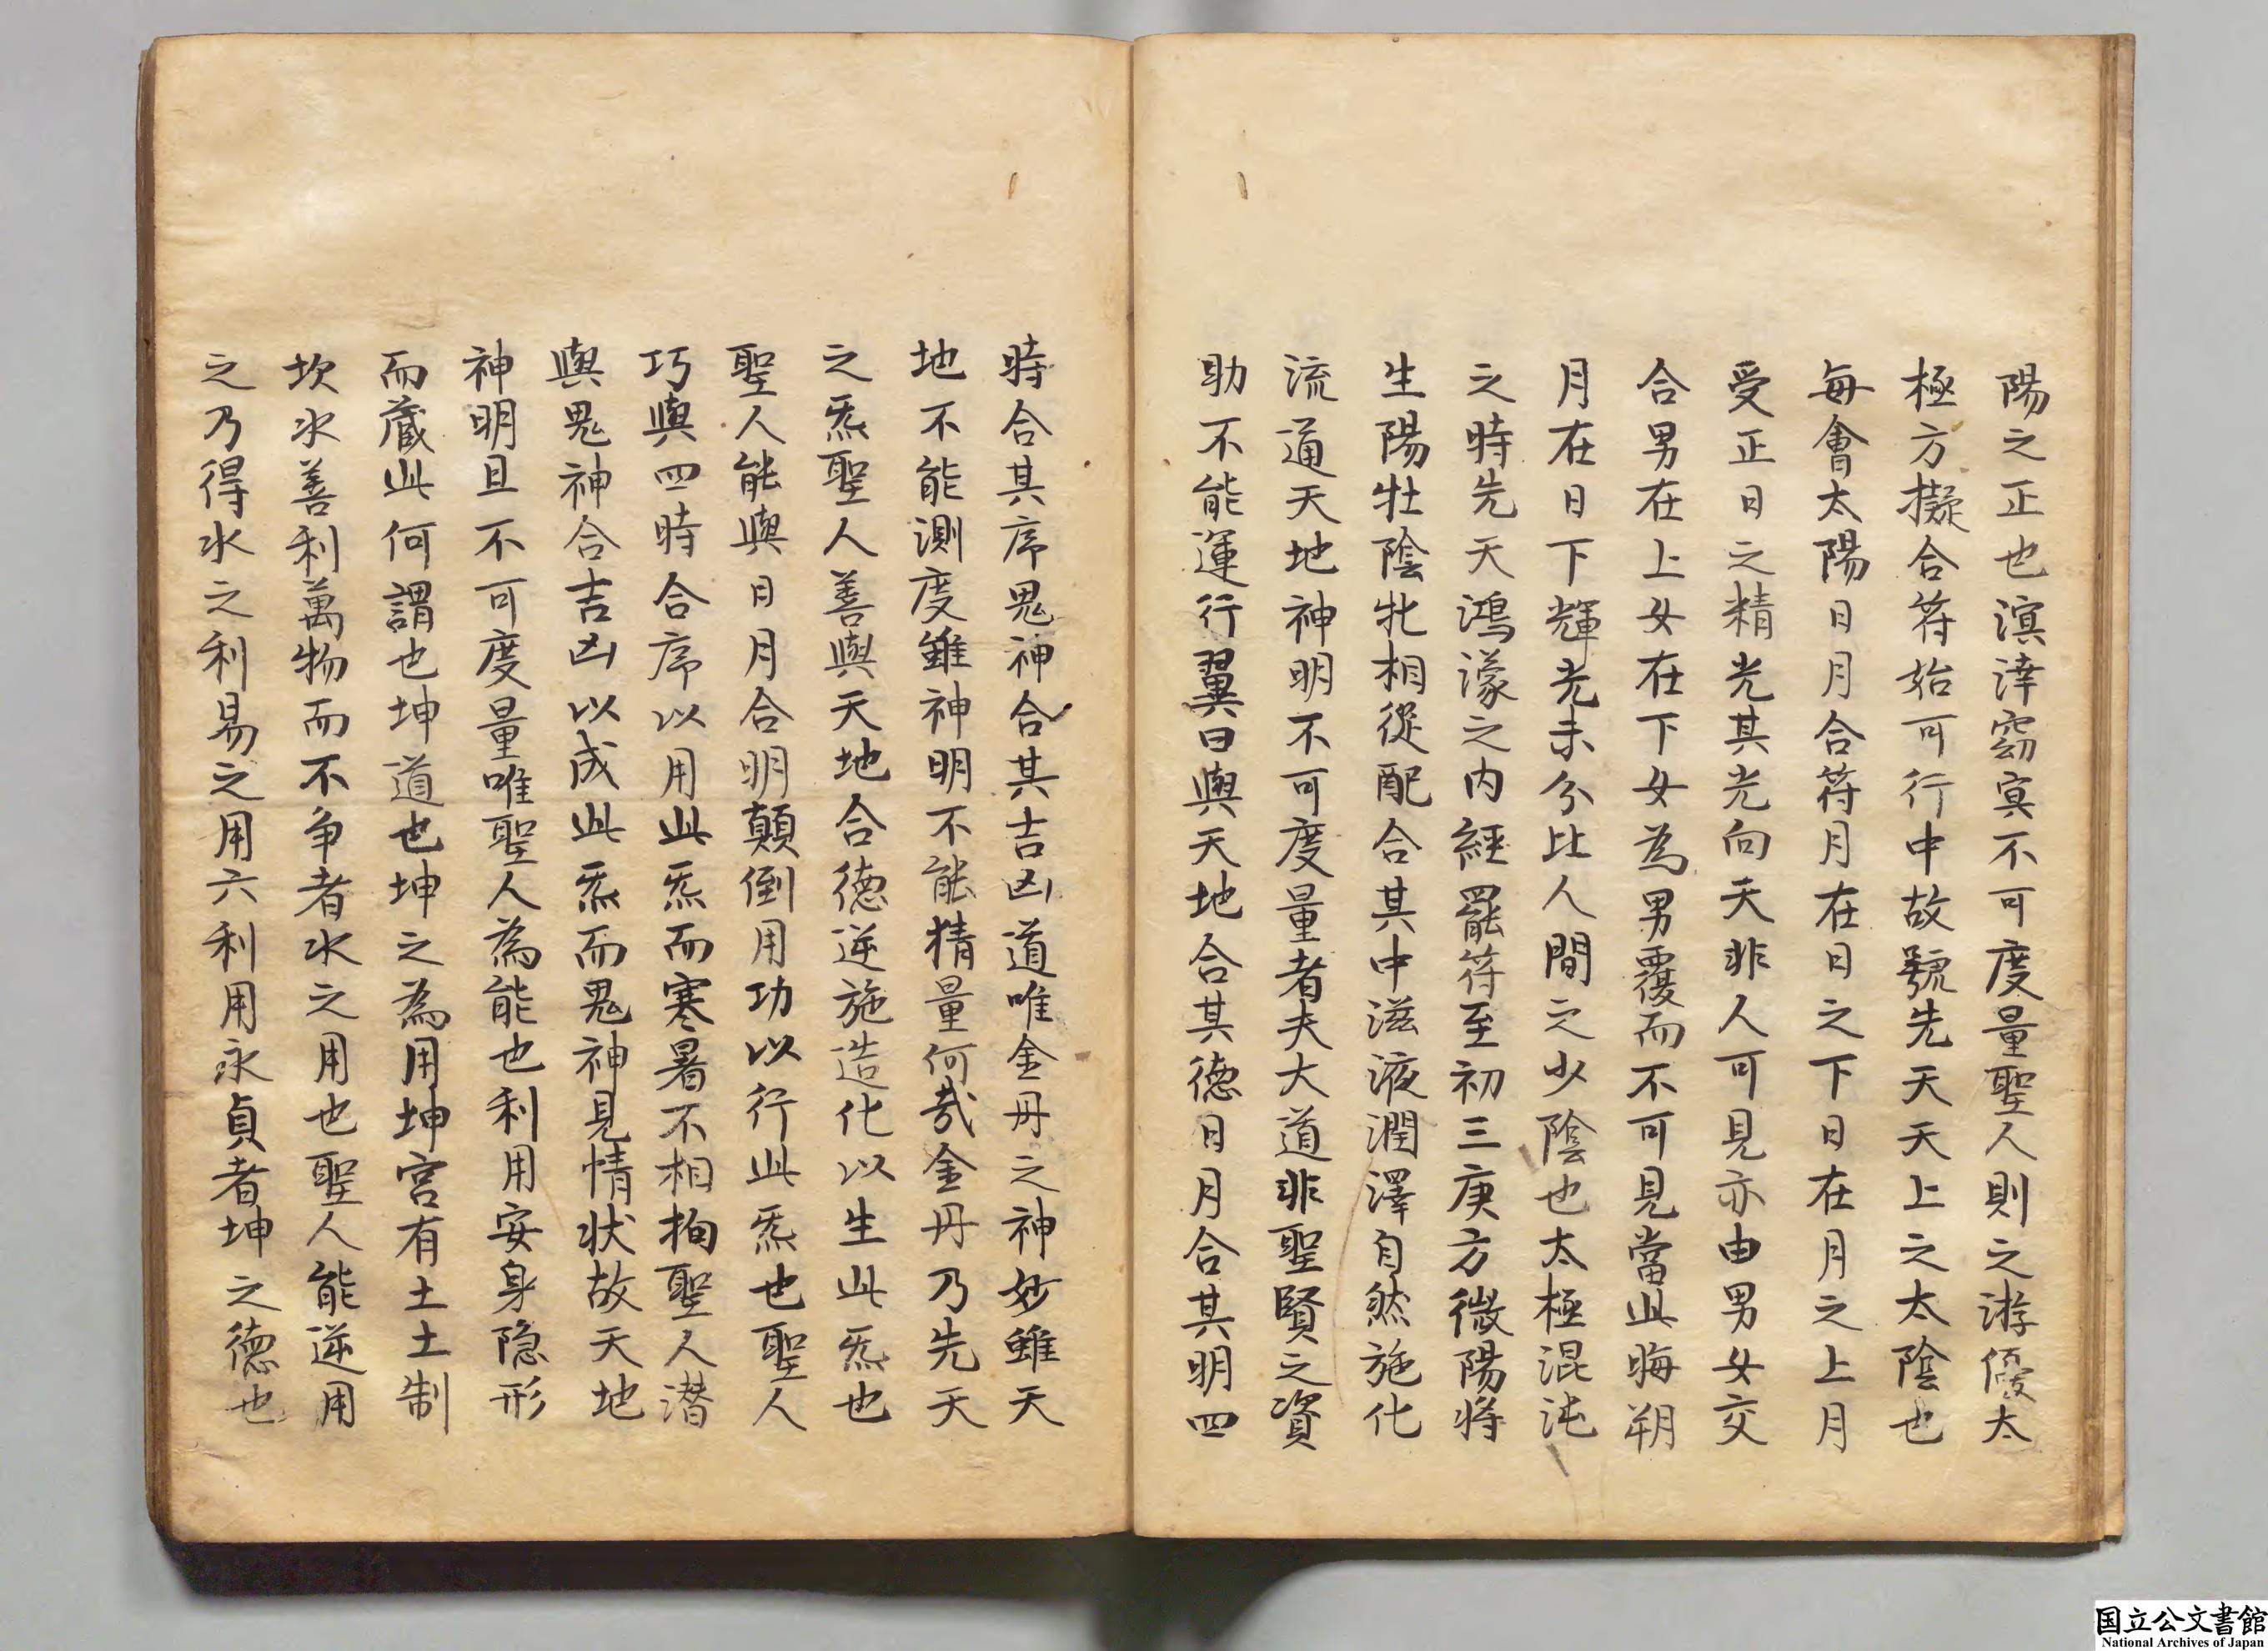 陽之正也溟涬窈冥不可度量聖人則之游優太
極方擬合符始可行中故號先天天上之太陰也
每會太陽日月合符月在日之下日在月之上月
受正日之精光其光向天非人可見亦由男女交
合男在上女在下女為男覆而不可見當此晦朔
月在日下輝光未分比人間之少陰也太極混沌
之時先天鴻濛之内經罷符至初三庚方微陽將
生陽牡陰牝相從配合其中滋液潤澤自然施化
流通天地神明不可度量者夫大道非聖賢之資
助不能運行翼曰與天地合其德日月合其明四
時合其序鬼神合其吉凶道唯金丹之神妙雖天
地不能測度雖神明不能精量何哉金丹乃先天
之炁聖人善與天地合德逆施造化以生此炁也
聖人能與日月合明顛倒用功以行此炁也聖人
巧與四時合序以用此炁而寒暑不相拘聖人潜
與鬼神合吉凶以成此炁而鬼神見情状故天地
神明且不可度量唯聖人為能也利用安身隐形
而藏此何謂也坤道也坤之為用坤宮有土土制
坎水善利萬物而不争者水之用也聖人能逆用
之乃得水之利易之用六利用永貞者坤之德也
国立公文書館
National Archives of Japan